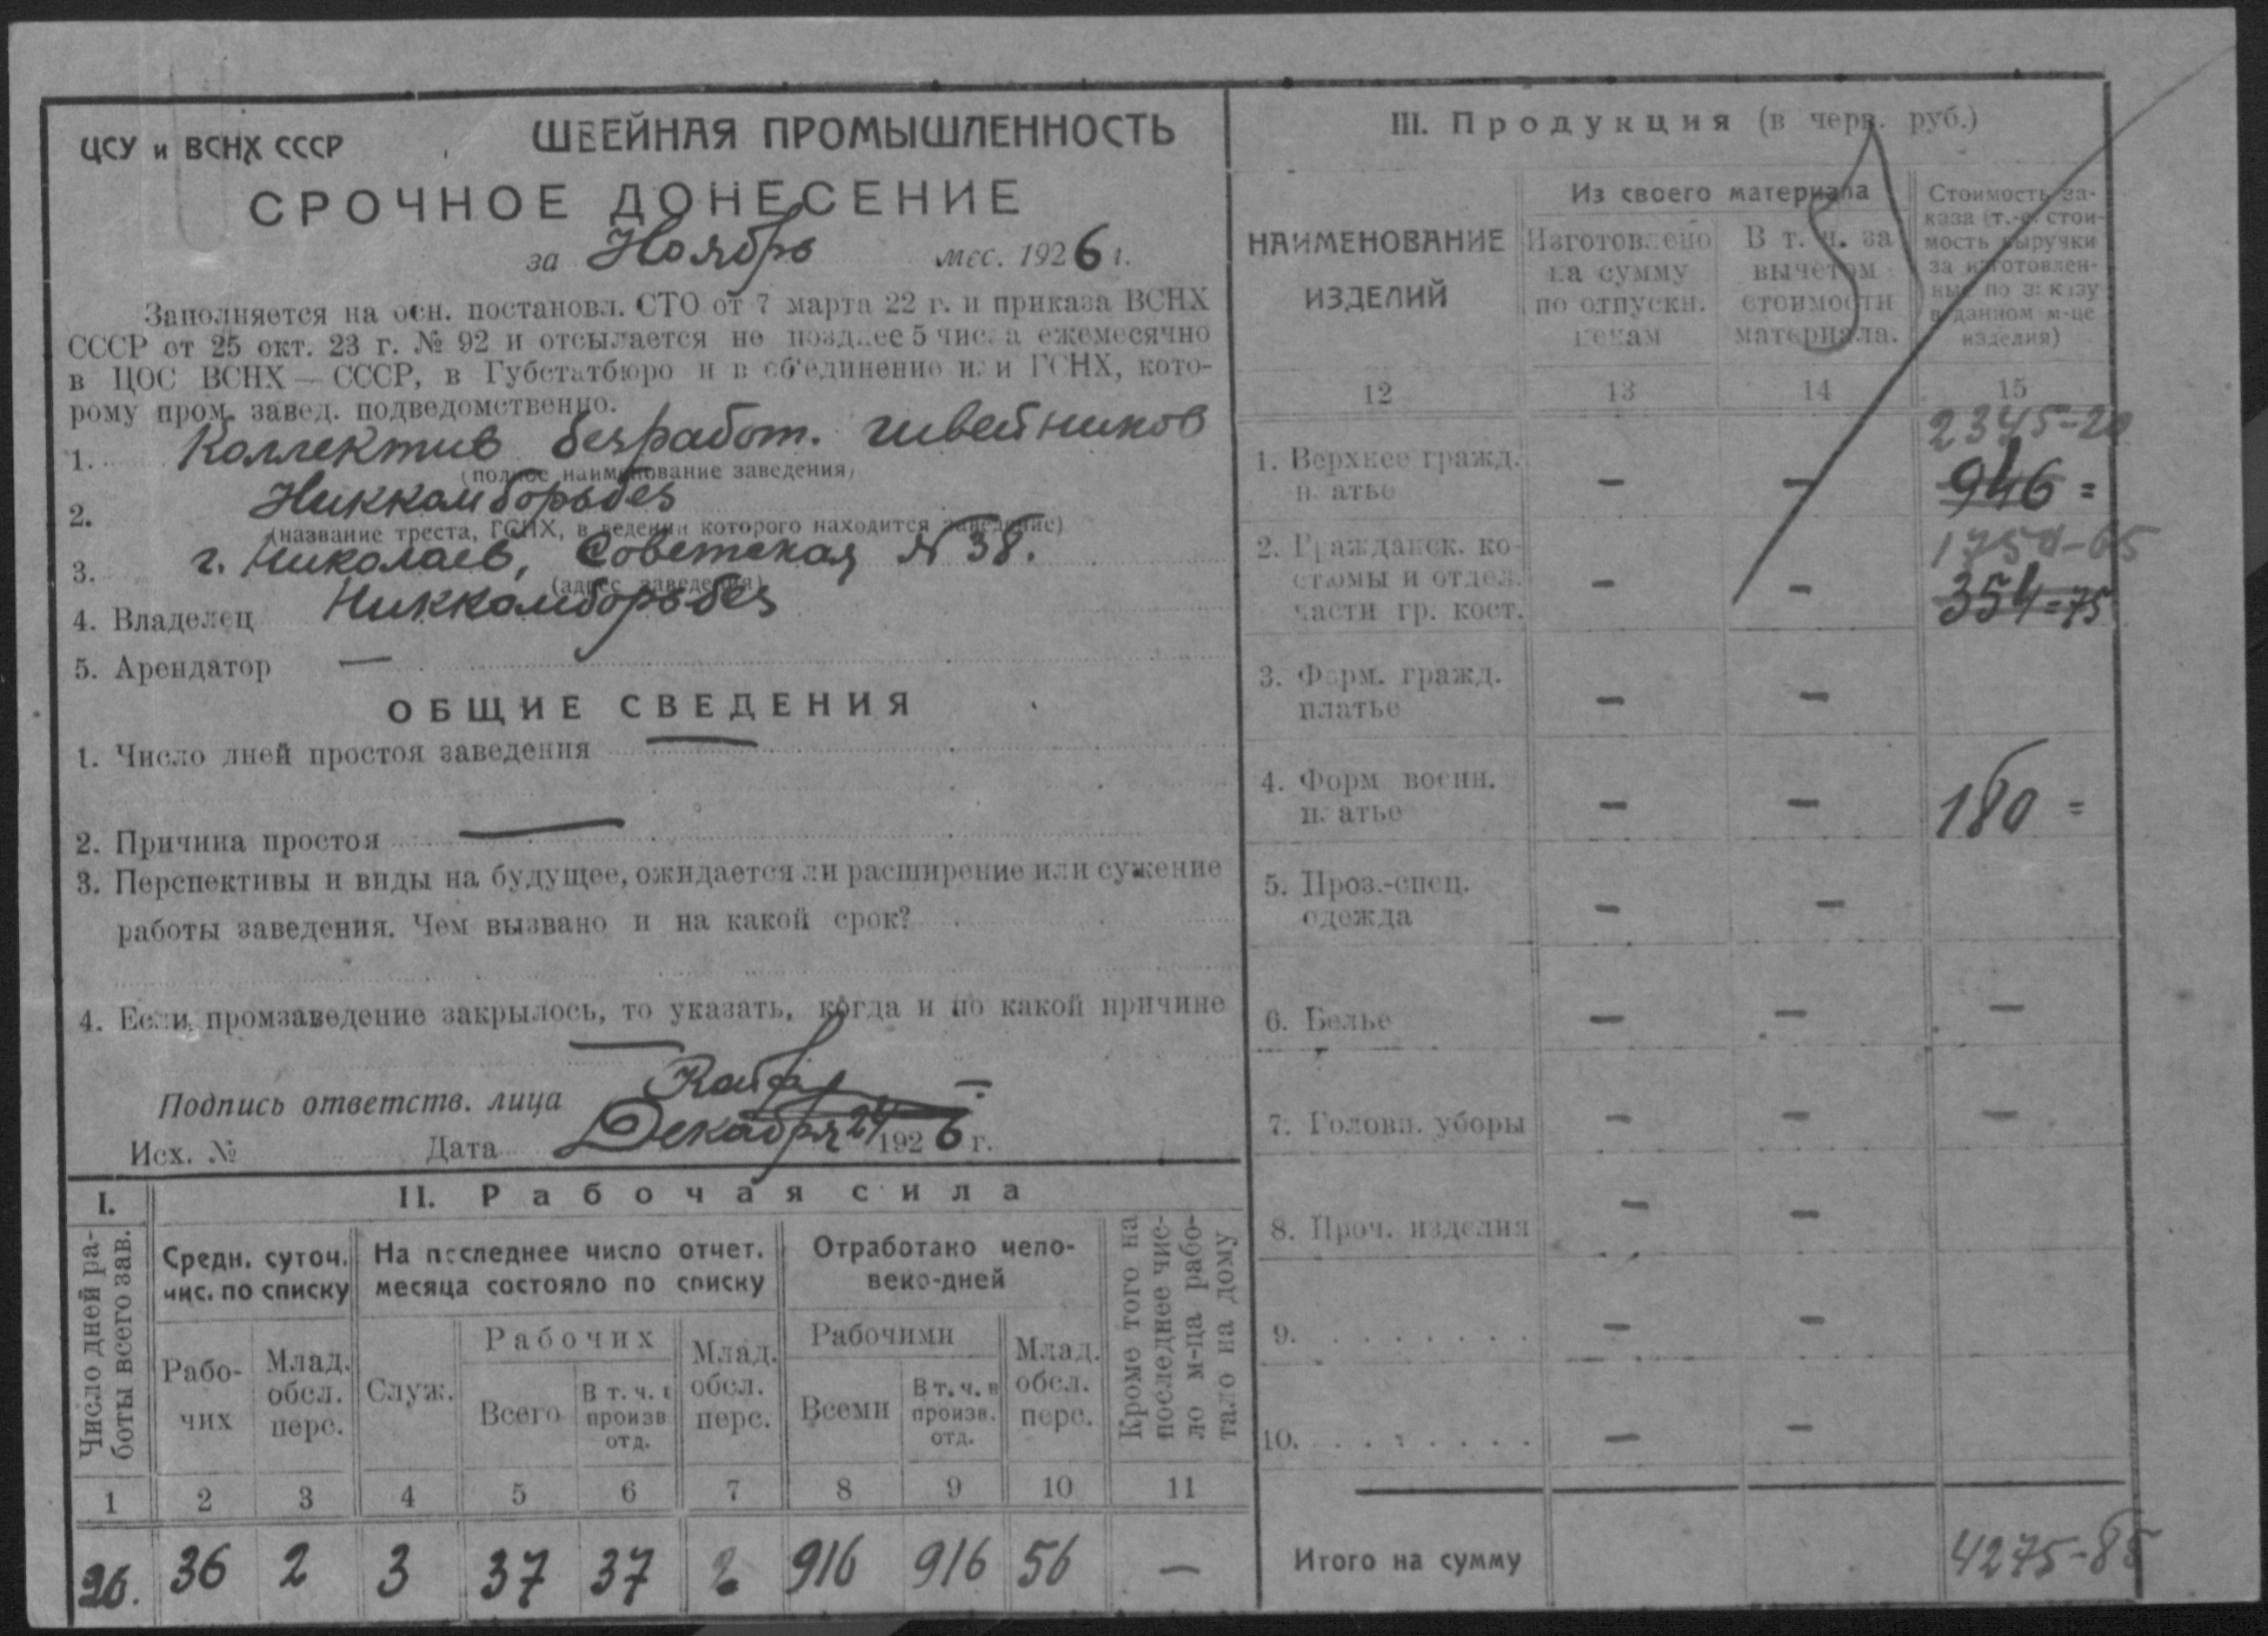 ЦСУ и ВСНХ СССР
ШВЕЙНАЯ ПРОМЫШЛЕННОСТЬ
СРОЧНОЕ ДОНЕСЕНИЕ
за Ноябрь мес. 1926 г.
Заполняется на осн. постановл. СТО от 7 марта 22 г. и приказа ВСНХ
СССР от 25 окт. 23 г. № 92 и отсылается не позднее 5 числа ежемесячно
в ЦОС ВСНХ — СССР, в Губстатбюро и в об'единение или ГСНХ, кото-
рому пром. завед. подведомственно.
1. Коллектив безработ. швейников
(полное наименование заведения)
2. Никкомборьбез
(название треста, ГСНХ, в ведении которого находится заведение)
3. г. Николаев, Советская № 38.
(адрес заведения)
4. Владелец Никкомборьбез
5. Арендатор —
ОБЩИЕ СВЕДЕНИЯ
1. Число дней простоя заведения —
2. Причина простоя —
3. Перспективы и виды на будущее, ожидается ли расширение или сужение
работы заведения. Чем вызвано и на какой срок?
4. Если промзаведение закрылось, то указать, когда и по какой причине
—
Подпись ответств. лица
Исх. № Дата Декабря 24 1926 г.
I. II. Рабочая сила
Число дней ра-
боты всего зав.
Средн. суточ.
чис. по списку
На последнее число отчет.
месяца состояло по списку
Отработано чело-
веко-дней
Кроме того на
последнее чис-
ло м-ца рабо-
тало на дому
Рабо-
чих
Млад.
обсл.
перс.
Служ.
Рабочих
Всего
В т. ч. в
произв
отд.
Млад.
обсл.
перс.
Рабочими
Всеми
В т. ч. в
произв.
отд.
Млад.
обсл.
перс.
1 2 3 4 5 6 7 8 9 10 11
26. 36 2 3 37 37 2 916 916 56 —
III. Продукция (в черв. руб.)
НАИМЕНОВАНИЕ
ИЗДЕЛИЙ
Из своего материала
Изготовлено
на сумму
по отпускн.
ценам
В т. ч. за
вычетом
стоимости
материала.
Стоимость за-
каза (т.-е. стои-
мость выручки
за изготовлен-
ные по заказу
в данном м-це
изделия)
12 13 14 15
2345-20
1. Верхнее гражд.
платье — — 946 =
1750-65
2. Гражданск. ко-
стюмы и отдел.
части гр. кост. — — 354=75
3. Форм. гражд.
платье — —
4. Форм воен.
платье — — 180 =
5. Проз.-спец.
одежда — —
6. Белье — — —
7. Головн. уборы — — —
8. Проч. изделия — —
9. . . . . . . . . — —
10. . . . . . . . . — —
Итого на сумму 4275-85